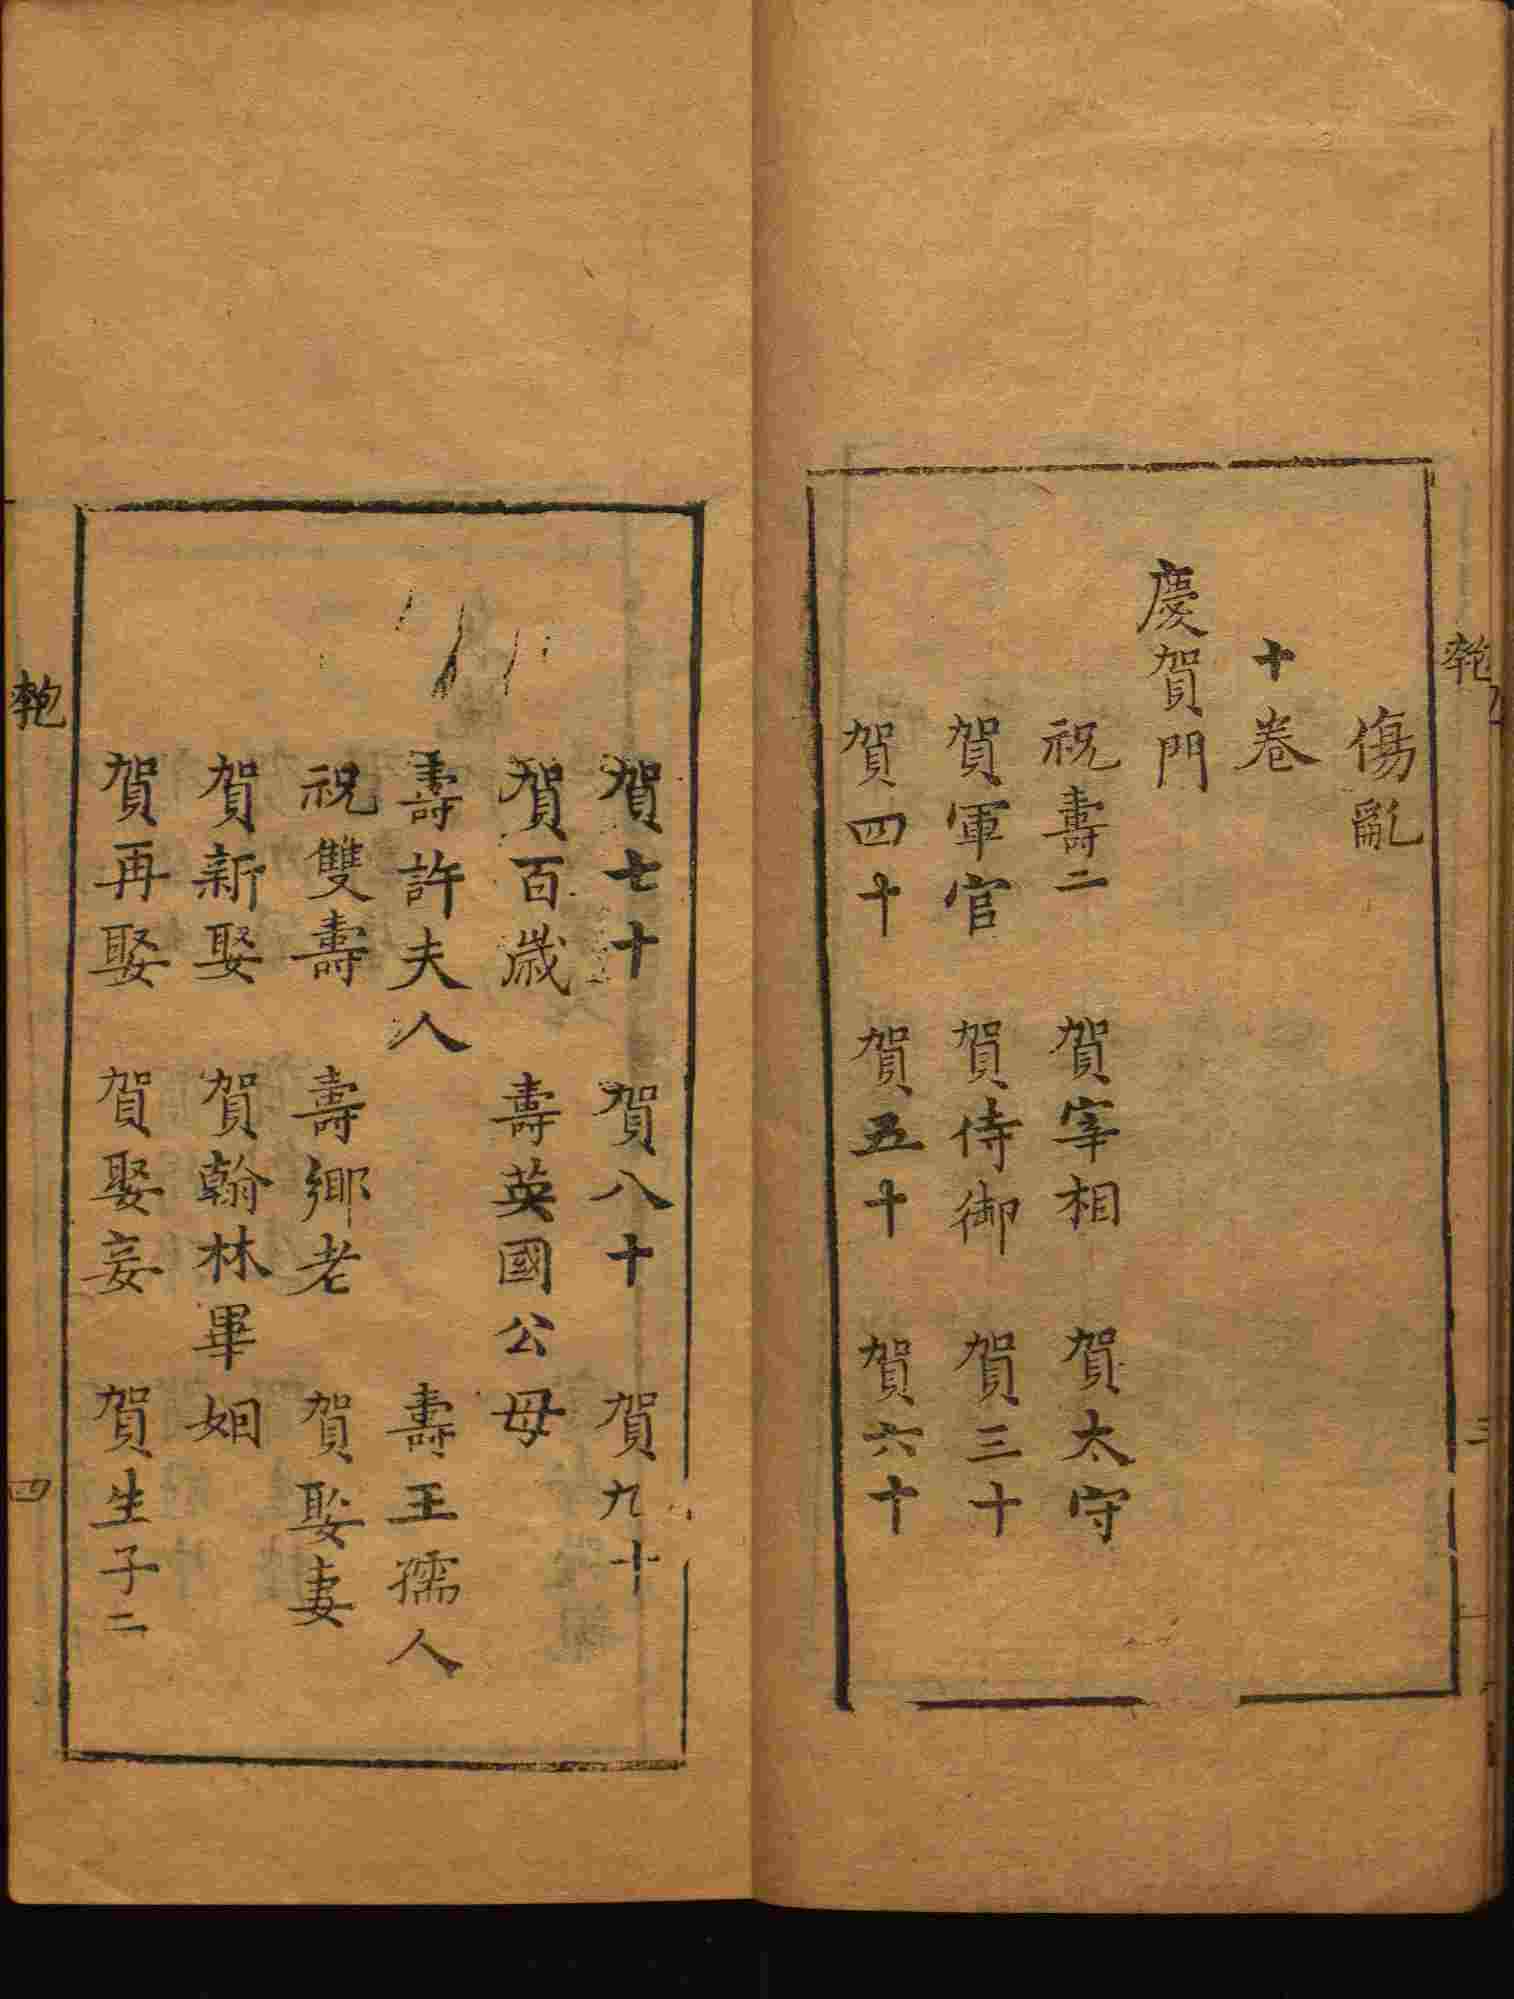 傷亂
十卷
慶賀門
祝壽二　賀宰相　賀太守
賀軍官　賀侍御　賀三十
賀四十　賀五十　賀六十
賀七十　賀八十　賀九十
賀百歲　壽英國公母
壽許夫人　壽王孺人
祝雙壽　壽鄉老　賀娶妻
賀新娶　賀翰林畢姻
賀再娶　賀娶妾　賀生子二
四